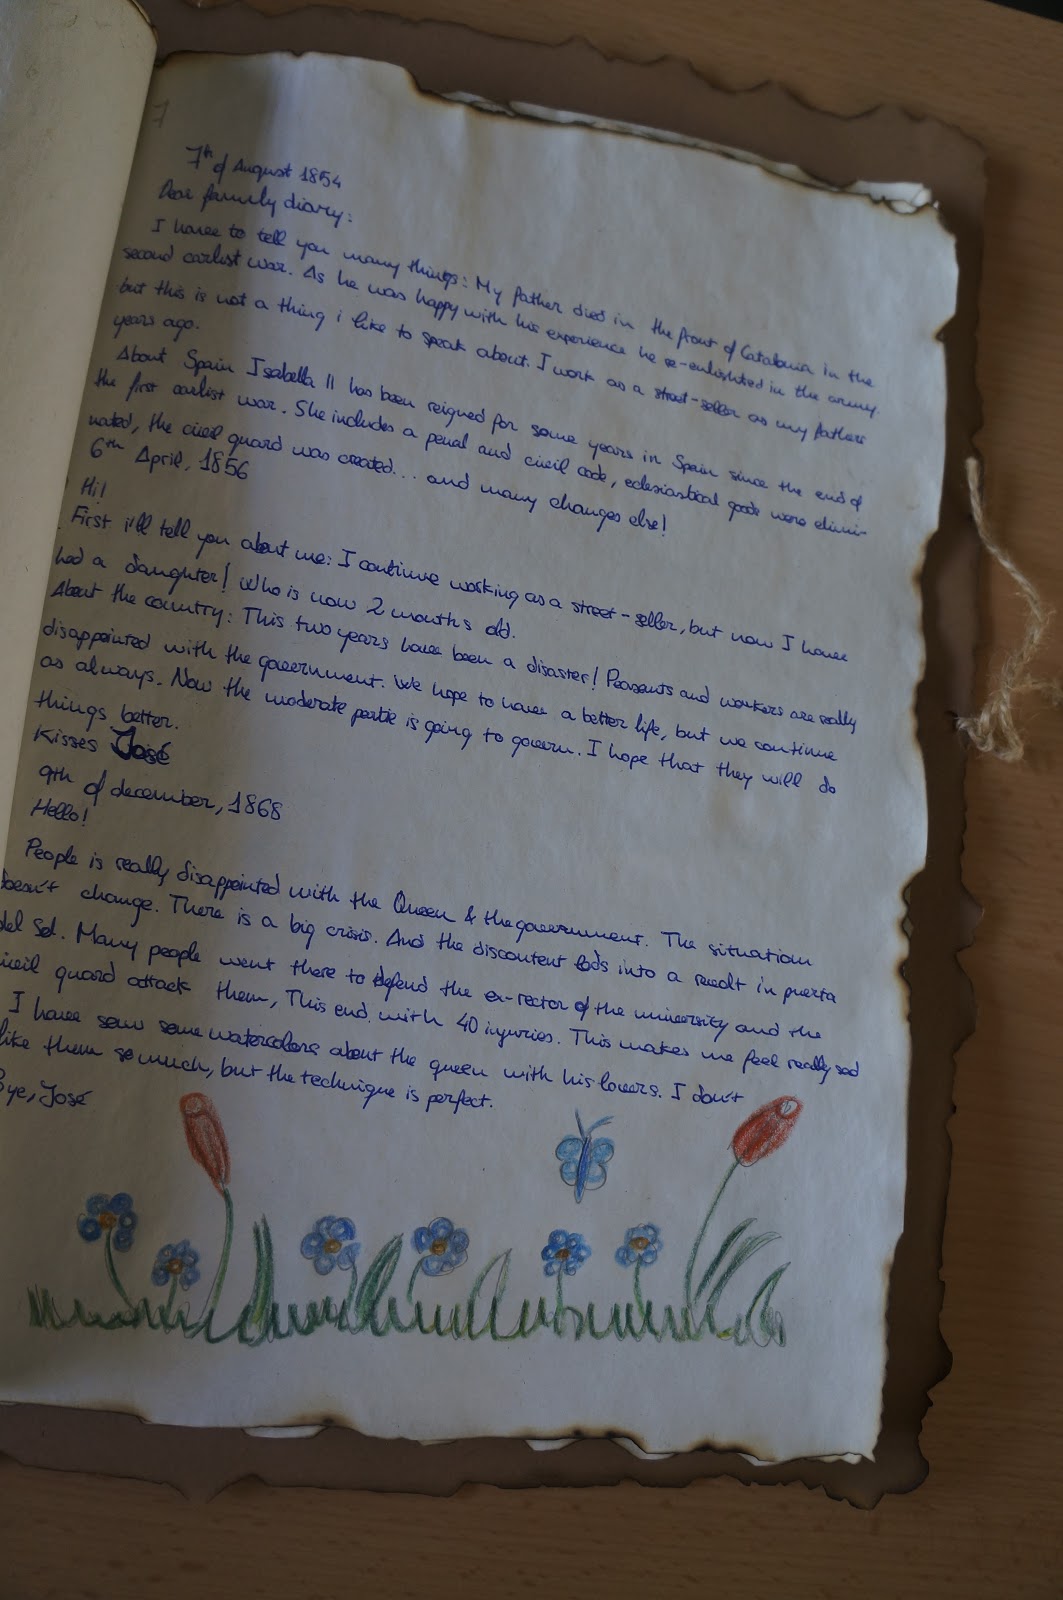 7
7th of August 1854
Dear family diary:
I have to tell you many things: My father died in the front of Catalonia in the
second carlist war. As he was happy with his experience he re-enlishted in the army.
but this is not a thing i like to speak about. I work as a street-seller as my father
years ago.
About Spain Isabella II has been reigned for some years in Spain since the end of
the first carlist war. She includes a penal and civil code, eclesiastical goods were elimi-
nated, the civil guard was created... and many changes else!
6th April, 1856
Hi!
First i'll tell you about me: I continue working as a street-seller, but now I have
had a daughter! Who is now 2 months old.
About the country: This two years have been a disaster! Peasents and workers are really
disappointed with the government. We hope to have a better life, but we continue
as always. Now the moderate partie is going to govern. I hope that they will do
things better.
Kisses José
9th of december, 1868
Hello!
People is really disappointed with the Queen & the government. The situation
doesn't change. There is a big crisis. And the discontent leds into a revolt in puerta
del Sol. Many people went there to defend the ex-rector of the university and the
civil guard attack them, This end with 40 injuries. This makes me feel really sad
I have seen some watercolors about the queen with his lovers. I don't
like them so much, but the technique is perfect.
Bye, José